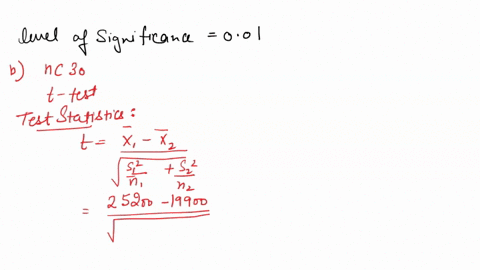 level of Significance = 0.01
b) n C 30
t-test
Test Statistics:
t = x̄₁ - x̄₂
√ s₁²/n₁ + s₂²/n₂
= 25200 - 19900
√